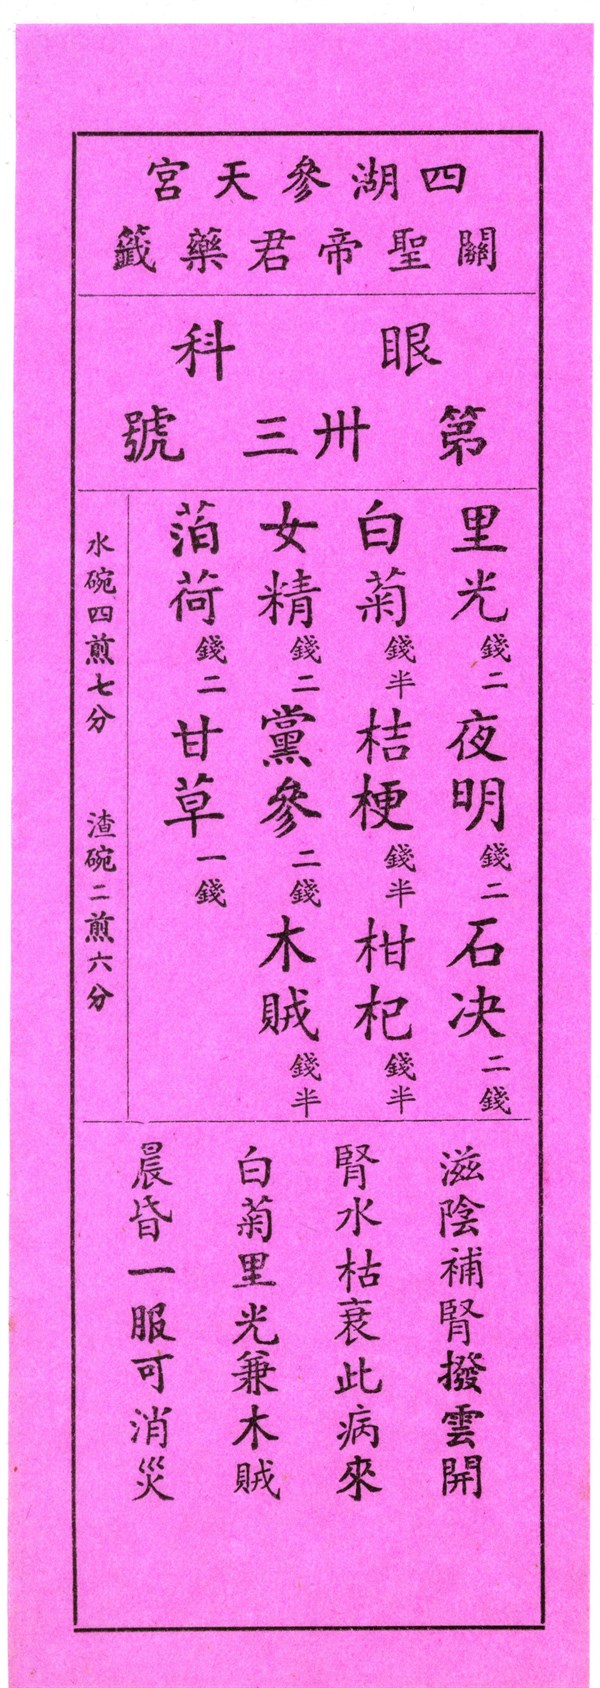 四湖參天宮
關聖帝君藥籤
眼科
第卅三號
里光錢二 夜明錢二 石决二錢
白菊錢半 桔梗錢半 柑杞錢半
女精錢二 黨參二錢 木賊錢半
萡荷錢二 甘草一錢
水碗四煎七分 渣碗二煎六分
滋陰補腎撥雲開
腎水枯衰此病來
白菊里光兼木賊
晨昏一服可消災